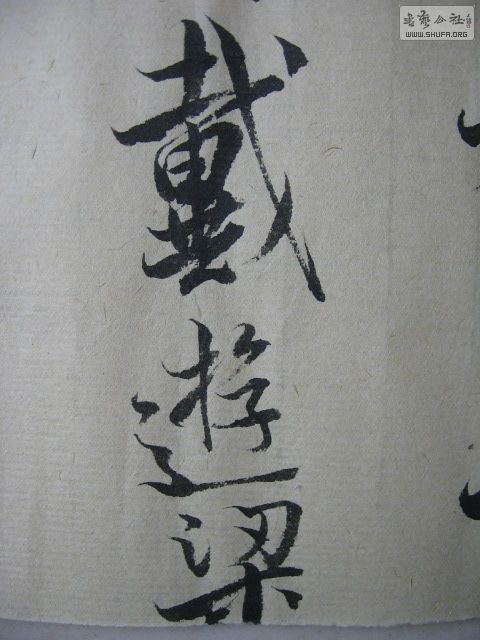 戴遊梁
書藝公社
WWW.SHUFA.ORG